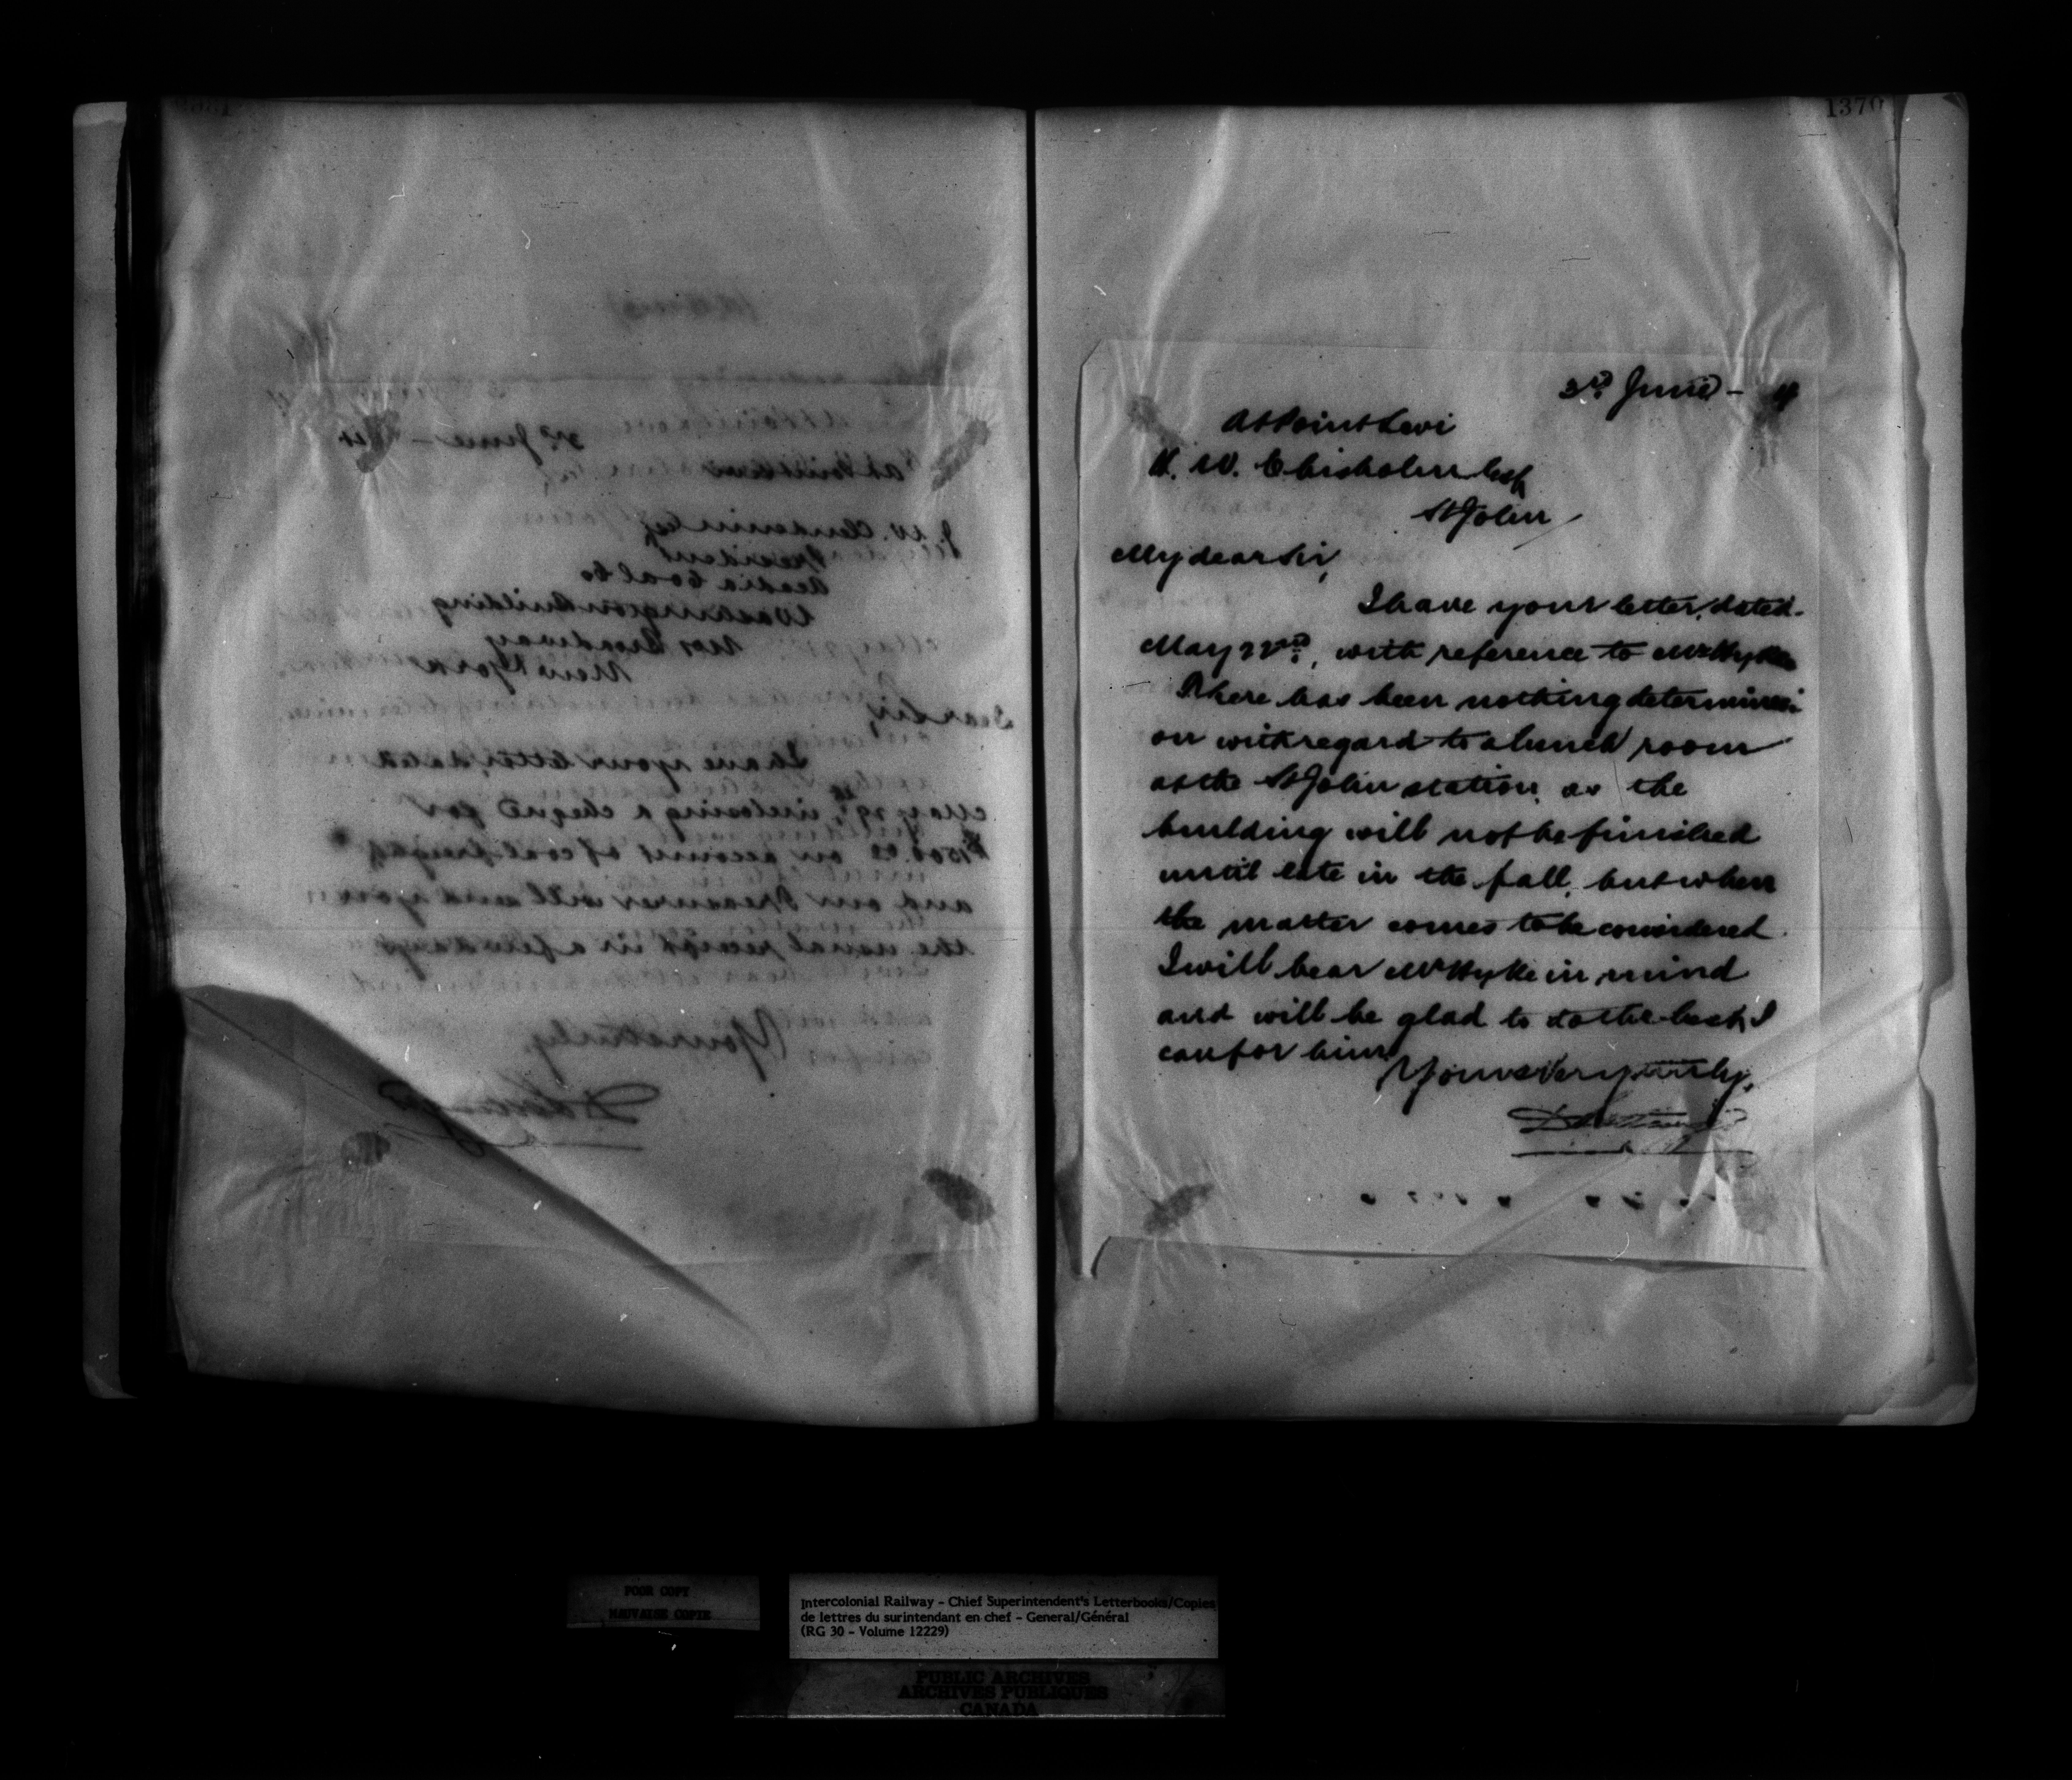 3rd June -
At Point Levi
J. W. Clendenin Esq
President
Acadia Coal Co
Washington Building
No 1 Broadway
New York
Dear Sir,
I have your letter, dated
May 29th, inclosing a cheque for
on account of coal freight
and our Treasurer will send you
the usual receipt in a few days
Yours truly,
1370
3rd June -
At Point Levi
W. Chisholm Esq
St John
My dear Sir,
I have your letter, dated
May 22nd, with reference to Mr
There has been nothing determined
on with regard to a lunch room
at the St John station, as the
building will not be finished
until late in the fall, but when
the matter comes to be considered
I will bear Mr in mind
and will be glad to do the best I
can for him
Yours Very truly,
POOR COPY
MAUVAISE COPIE
Intercolonial Railway - Chief Superintendent's Letterbooks/Copies
de lettres du surintendant en chef - General/Général
(RG 30 - Volume 12229)
PUBLIC ARCHIVES
ARCHIVES PUBLIQUES
CANADA